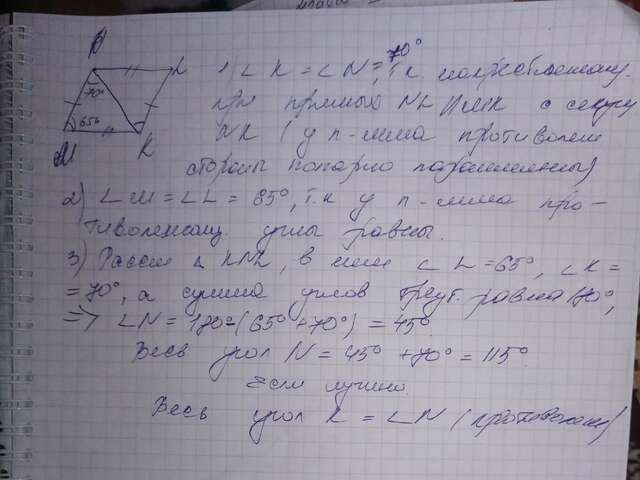 N L
70°
65°
M K
1) ∠K = ∠N = 70°, т.к. накрестлежащ.
при прямых NL ∥ MK с секущ
NK (у п-мма противолеж
стороны попарно параллельны)
2) ∠M = ∠L = 65°, т.к у п-мма про-
тиволежащ. углы равны.
3) Рассм △ KNL, в нём ∠L = 65°, ∠K =
= 70°, а сумма углов треуг. равна 180°,
=> ∠N = 180°-(65°+70°) = 45°
Весь угол N = 45° + 70° = 115°
Если нужно
Весь угол K = ∠N (противолеж)